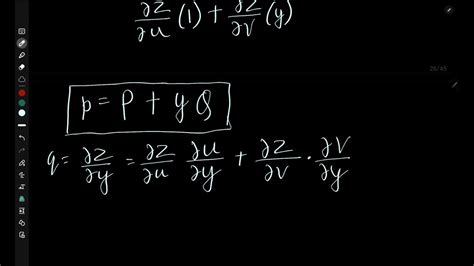 ∂Z/∂u (1) + ∂Z/∂V (y)
26/45
p = P + y Q
q = ∂Z/∂y = ∂Z/∂u ∂u/∂y + ∂Z/∂V · ∂V/∂y